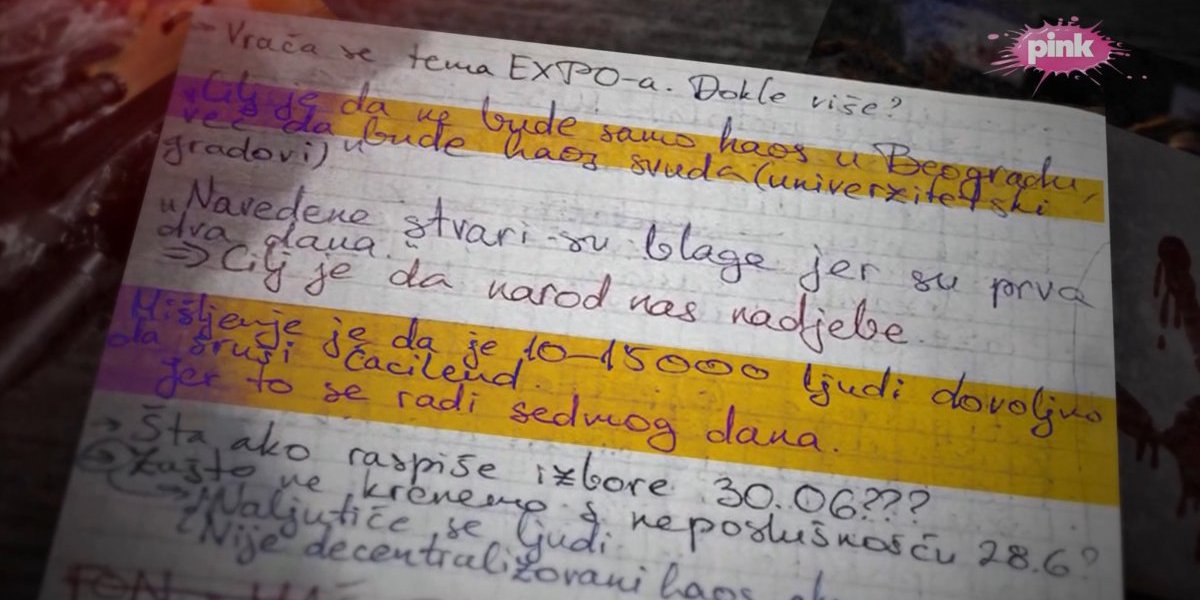 pink
→ Vraća se tema EXPO-a. Dokle više?
Cilj je da ne bude samo haos u Beogradu,
već da bude haos svuda (univerzitetski
gradovi)
"Navedene stvari su blage jer su prva
dva dana."
⇒ Cilj je da narod nas nadjebe.
Mišljenje je da je 10-15000 ljudi dovoljno
da sruši Ćacilend.
Jer to se radi sedmog dana.
→ Šta ako raspiše izbore 30.06???
Zašto ne krenemo s neposlušnošću 28.6?
→ Naljutiće se ljudi.
Nije decentralizovani haos
FON